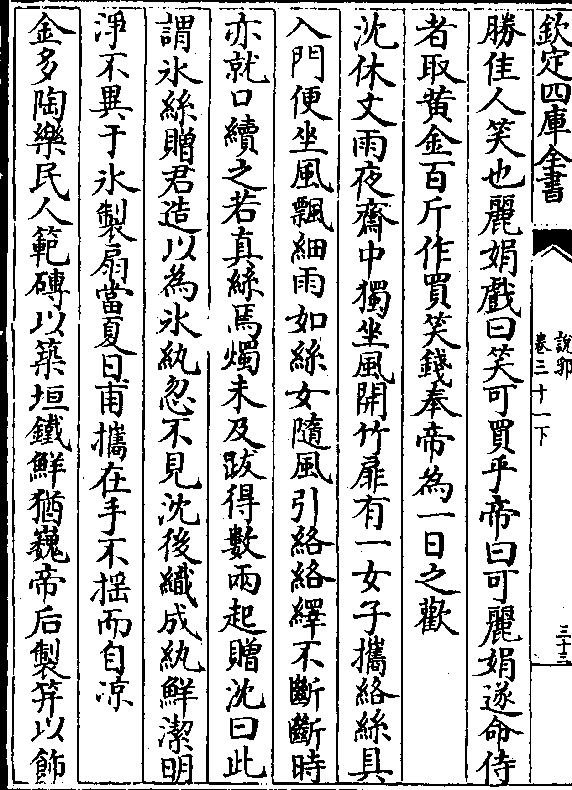 欽定四庫全書
說郛
卷三十一下
三十三
勝佳人笑也麗娟戲曰笑可買乎帝曰可麗娟遂命侍
者取黃金百斤作買笑錢奉帝為一日之歡
沈休文雨夜齋中獨坐風開竹扉有一女子攜絡絲具
入門便坐風飄細雨如絲女隨風引絡絡繹不斷斷時
亦就口續之若真絲焉燭未及跋得數兩起贈沈曰此
謂氷絲贈君造以為氷紈忽不見沈後織成紈鮮潔明
淨不異于氷製扇當夏日甫攜在手不揺而自凉
金多陶樂民人範磚以築垣鐵鮮猶巍帝后製笄以飾